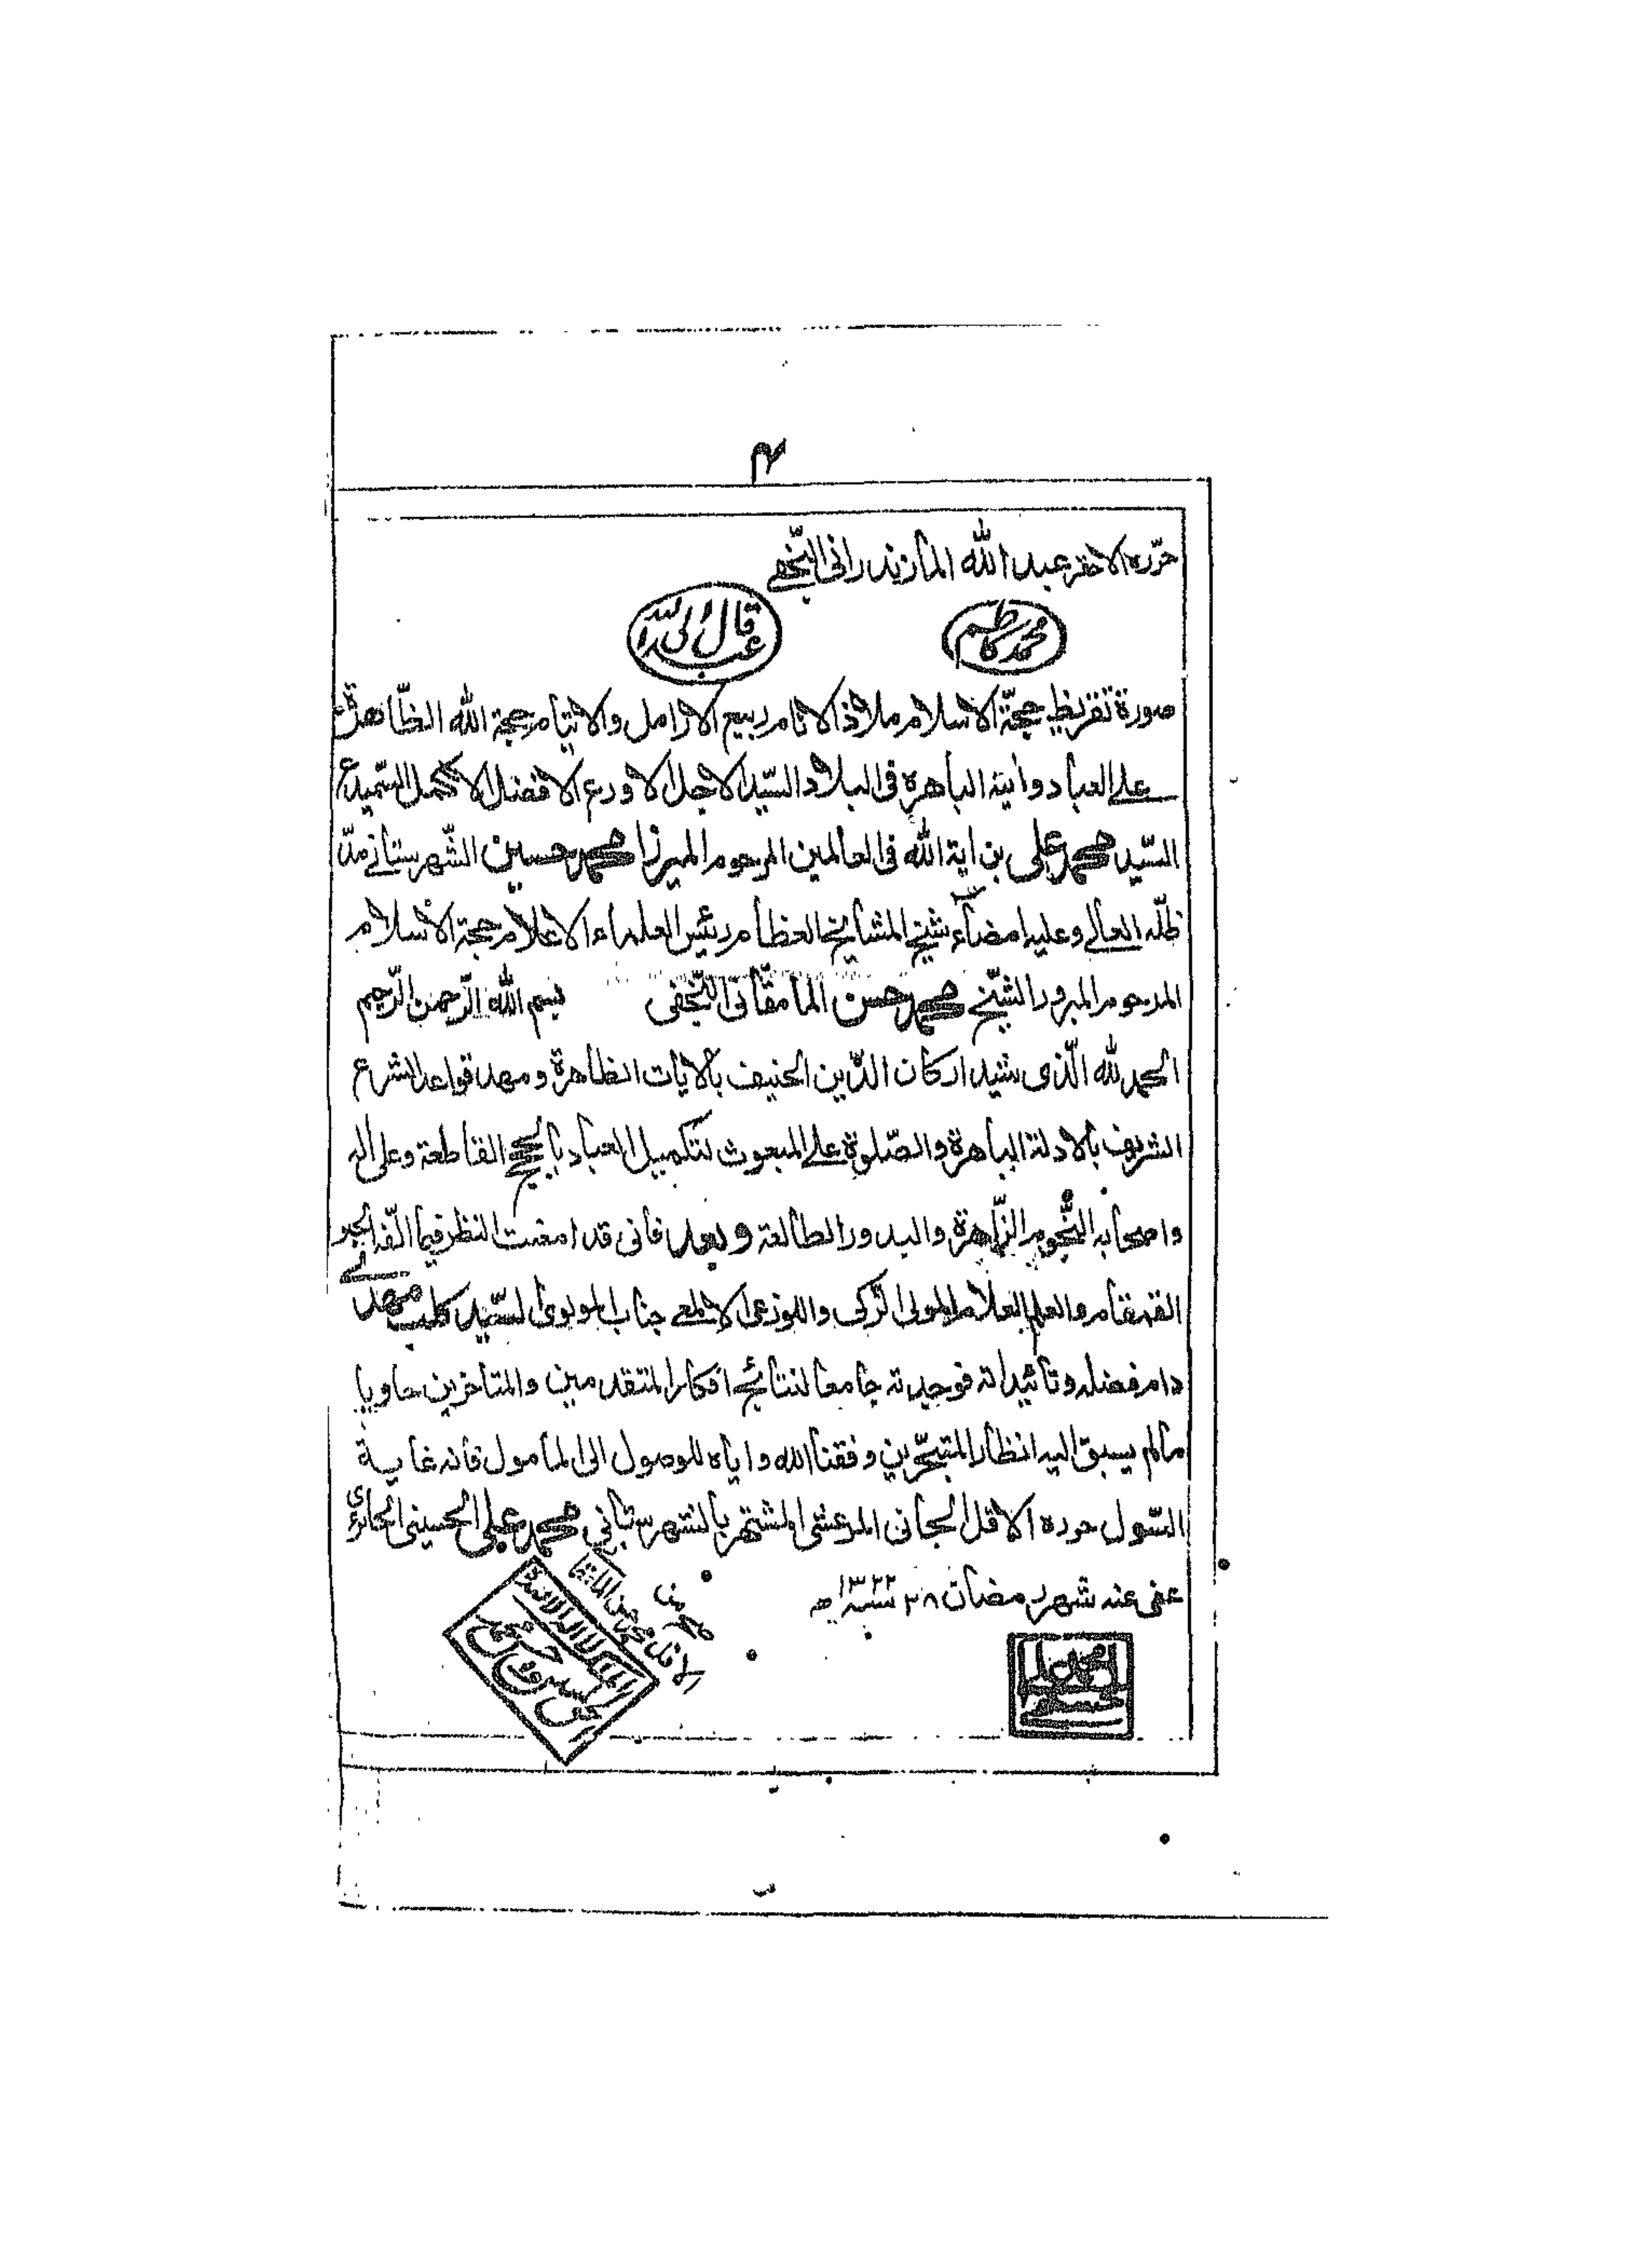 ۴
حرّره الاحقر عبد الله المازندرانی النّجفے
محمد کاظم
قال انی عبد الله
صورة تقریظ حجّة الاسلام ملاذ الانام ربیع الارامل والایتام حجة الله الظّاهرة
علے العباد وایته الباهرة فی البلاد السّید الاجل الاورع الافضل الاکمل السّمیدع
السّید محمد علی بن ایة الله فی العالمین المرحوم المیرزا محمد حسین الشّهرستانے مدّ
ظلّه العالے وعلیه امضاء شیخ المشایخ العظام رئیس العلماء الاعلام حجة الاسلام
المرحوم المبرور الشّیخ محمد حسن المامقّانی النّجفی بسم الله الرّحمن الرّحیم
الحمد لله الّذی شید ارکان الدّین الحنیف بالایات الظاهرة ومهد قواعد الشرع
الشریف بالادلة الباهرة والصّلوة علے المبعوث لتکمیل العباد بالحجج القاطعة وعلی اله
واصحابه النّجوم الزّاهرة والبدور الطالعة وبعد فانی قد امعنت النظر فیما الّفه الحبر
القمقام والعلم العلام المولی الزّکی واللوذعی الالمعے جناب المولوی السّید کلب مهدے
دام فضله وتائیداته فوجدته جامعا لنتائج افکار المتقدمین والمتاخرین حاویا
مالم یسبق الیه انظار المتبحّرین وفقنا الله وایاه للوصول الی المامول فانه غایة
السّول حرده الاقل الجانی المرعشی المشتهر بالشهرستانی محمد علی الحسینی الحائری
عفی عنه شهر رمضان ۲۸ سنة ۱۳۲۲ ه
صح من
الاقل محمد حسن المامقانی